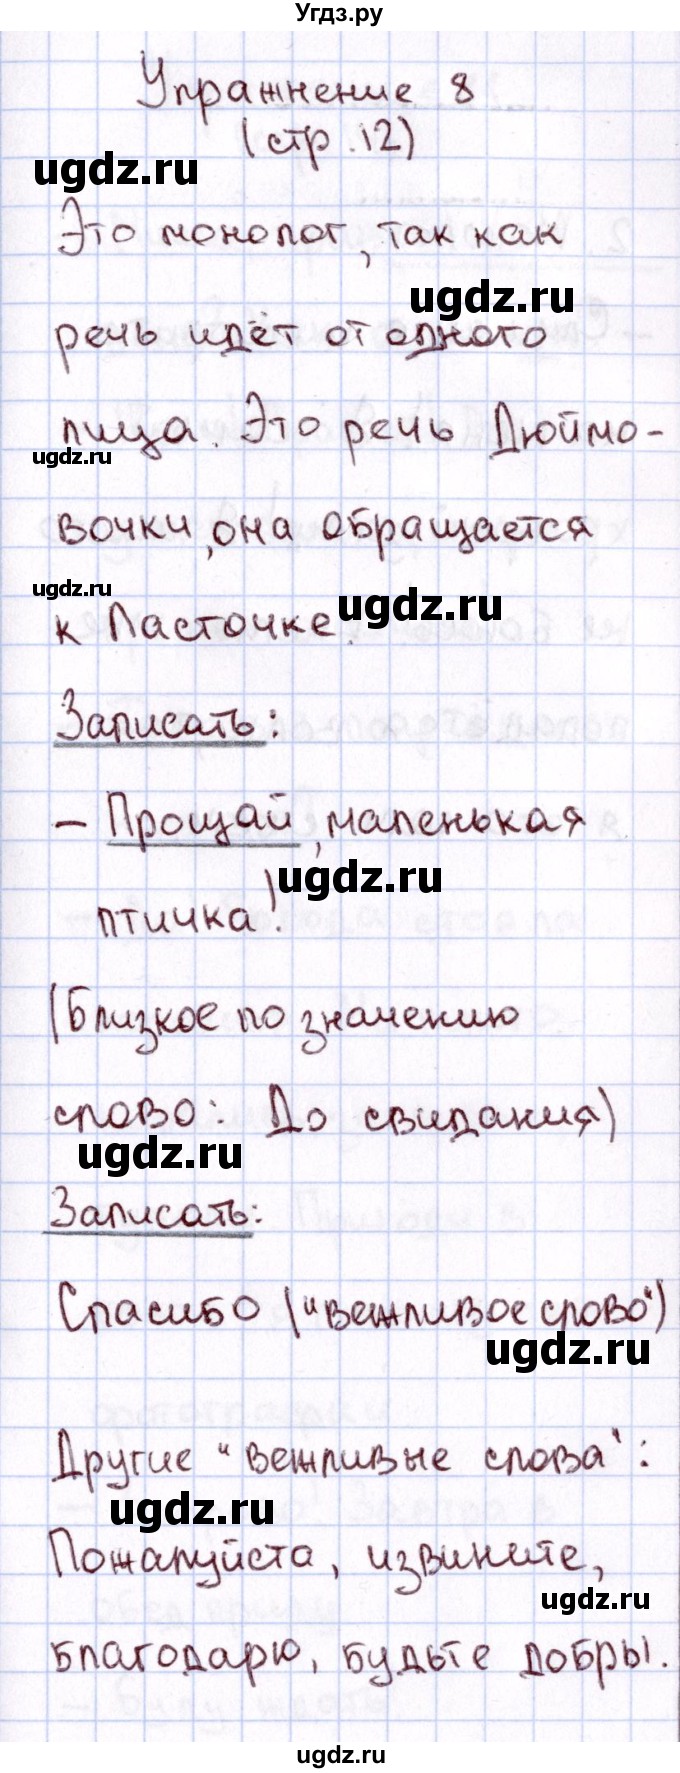 Угдз.ру
Упражнение 8
(стр. 12)
ugdz.ru
Это монолог, так как
ugdz.ru
речь идёт от одного
лица. Это речь Дюймо-
ugdz.ru
вочки, она обращается
ugdz.ru
ugdz.ru
к Ласточке.
Записать:
– Прощай, маленькая
ugdz.ru
птичка!
(Близкое по значению
слово: До свидания)
ugdz.ru
Записать:
Спасибо ("вежливое слово")
ugdz.ru
Другие "вежливые слова":
ugdz.ru
Пожалуйста, извините,
ugdz.ru
благодарю, будьте добры.
ugdz.ru